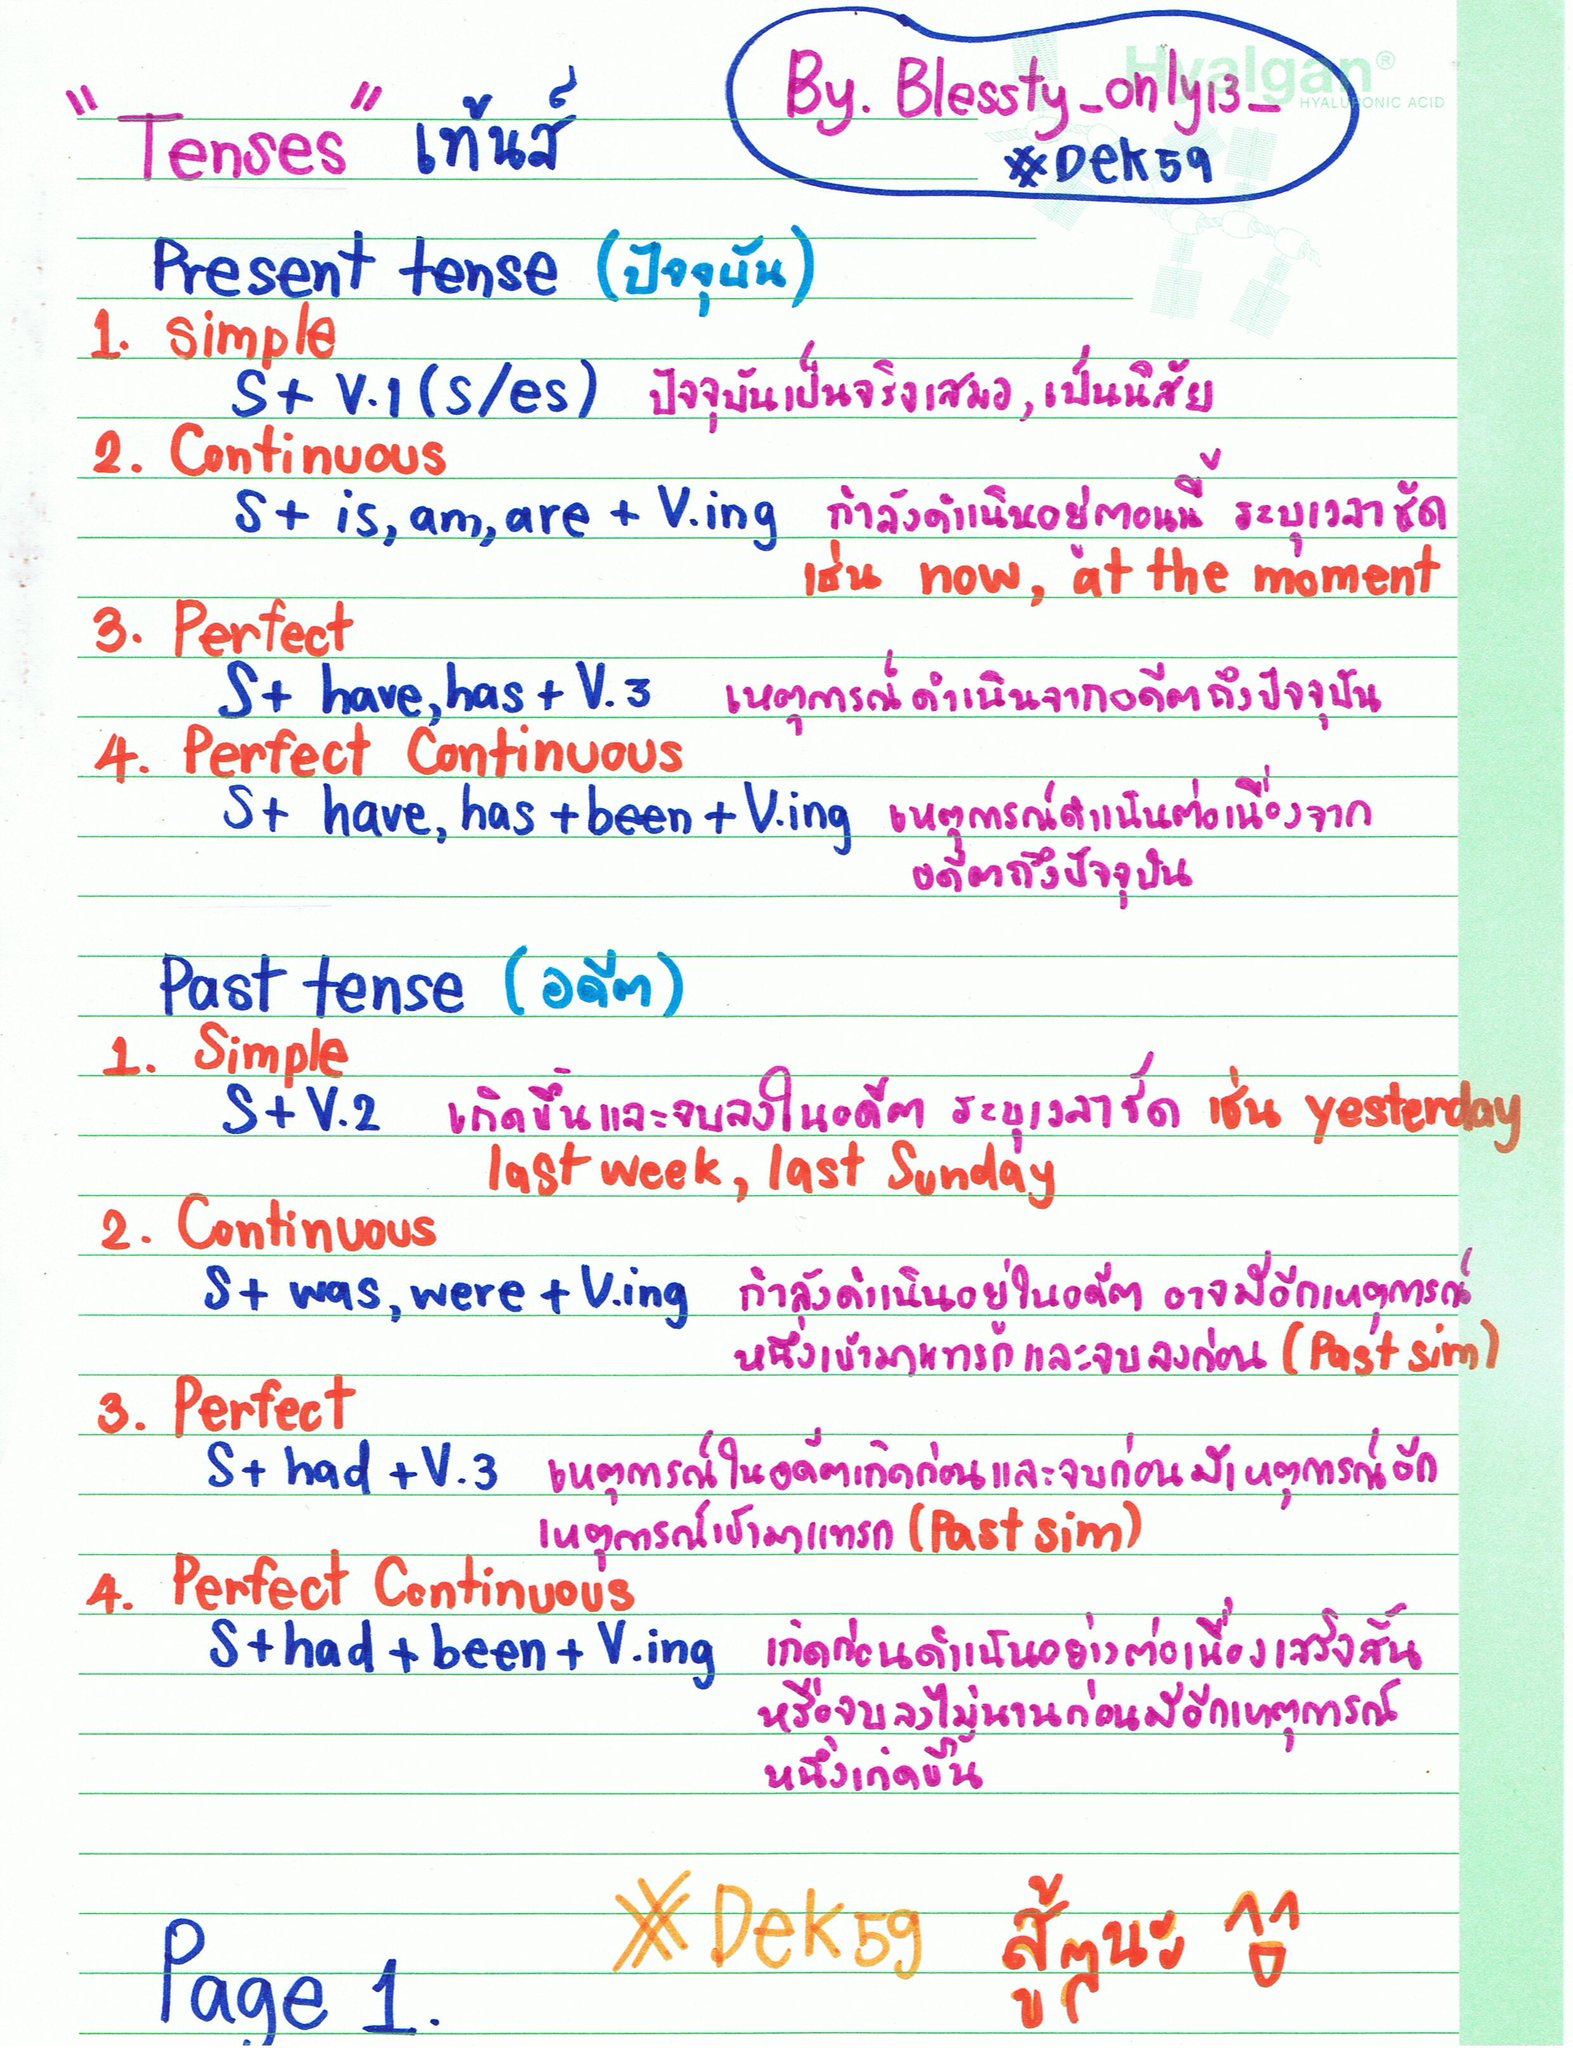 "Tenses" เท้นส์
By. Blessty_only13_
#Dek59
Hyalgan®
HYALURONIC ACID
Present tense (ปัจจุบัน)
1. Simple
S+ V.1 (s/es) ปัจจุบันเป็นจริงเสมอ, เป็นนิสัย
2. Continuous
S+ is, am, are + V.ing กำลังดำเนินอยู่ตอนนี้ ระบุเวลาชัด
เช่น now, at the moment
3. Perfect
S+ have, has + V.3 เหตุการณ์ดำเนินจากอดีตถึงปัจจุบัน
4. Perfect Continuous
S+ have, has + been + V.ing เหตุการณ์ดำเนินต่อเนื่องจาก
อดีตถึงปัจจุบัน
Past tense (อดีต)
1. Simple
S+V.2 เกิดขึ้นและจบลงในอดีต ระบุเวลาชัด เช่น yesterday
last week, last Sunday
2. Continuous
S+ was, were + V.ing กำลังดำเนินอยู่ในอดีต อาจมีอีกเหตุการณ์
หนึ่งเข้ามาแทรก และจบลงก่อน (Past sim)
3. Perfect
S+ had + V.3 เหตุการณ์ในอดีตเกิดก่อนและจบก่อนมีเหตุการณ์อีก
เหตุการณ์เข้ามาแทรก (Past sim)
4. Perfect Continuous
S+had + been + V.ing เกิดก่อนดำเนินอย่างต่อเนื่องเสร็จสิ้น
หรือจบลงไม่นานก่อนมีอีกเหตุการณ์
หนึ่งเกิดขึ้น
#Dek59 สู้ๆนะ
Page 1.